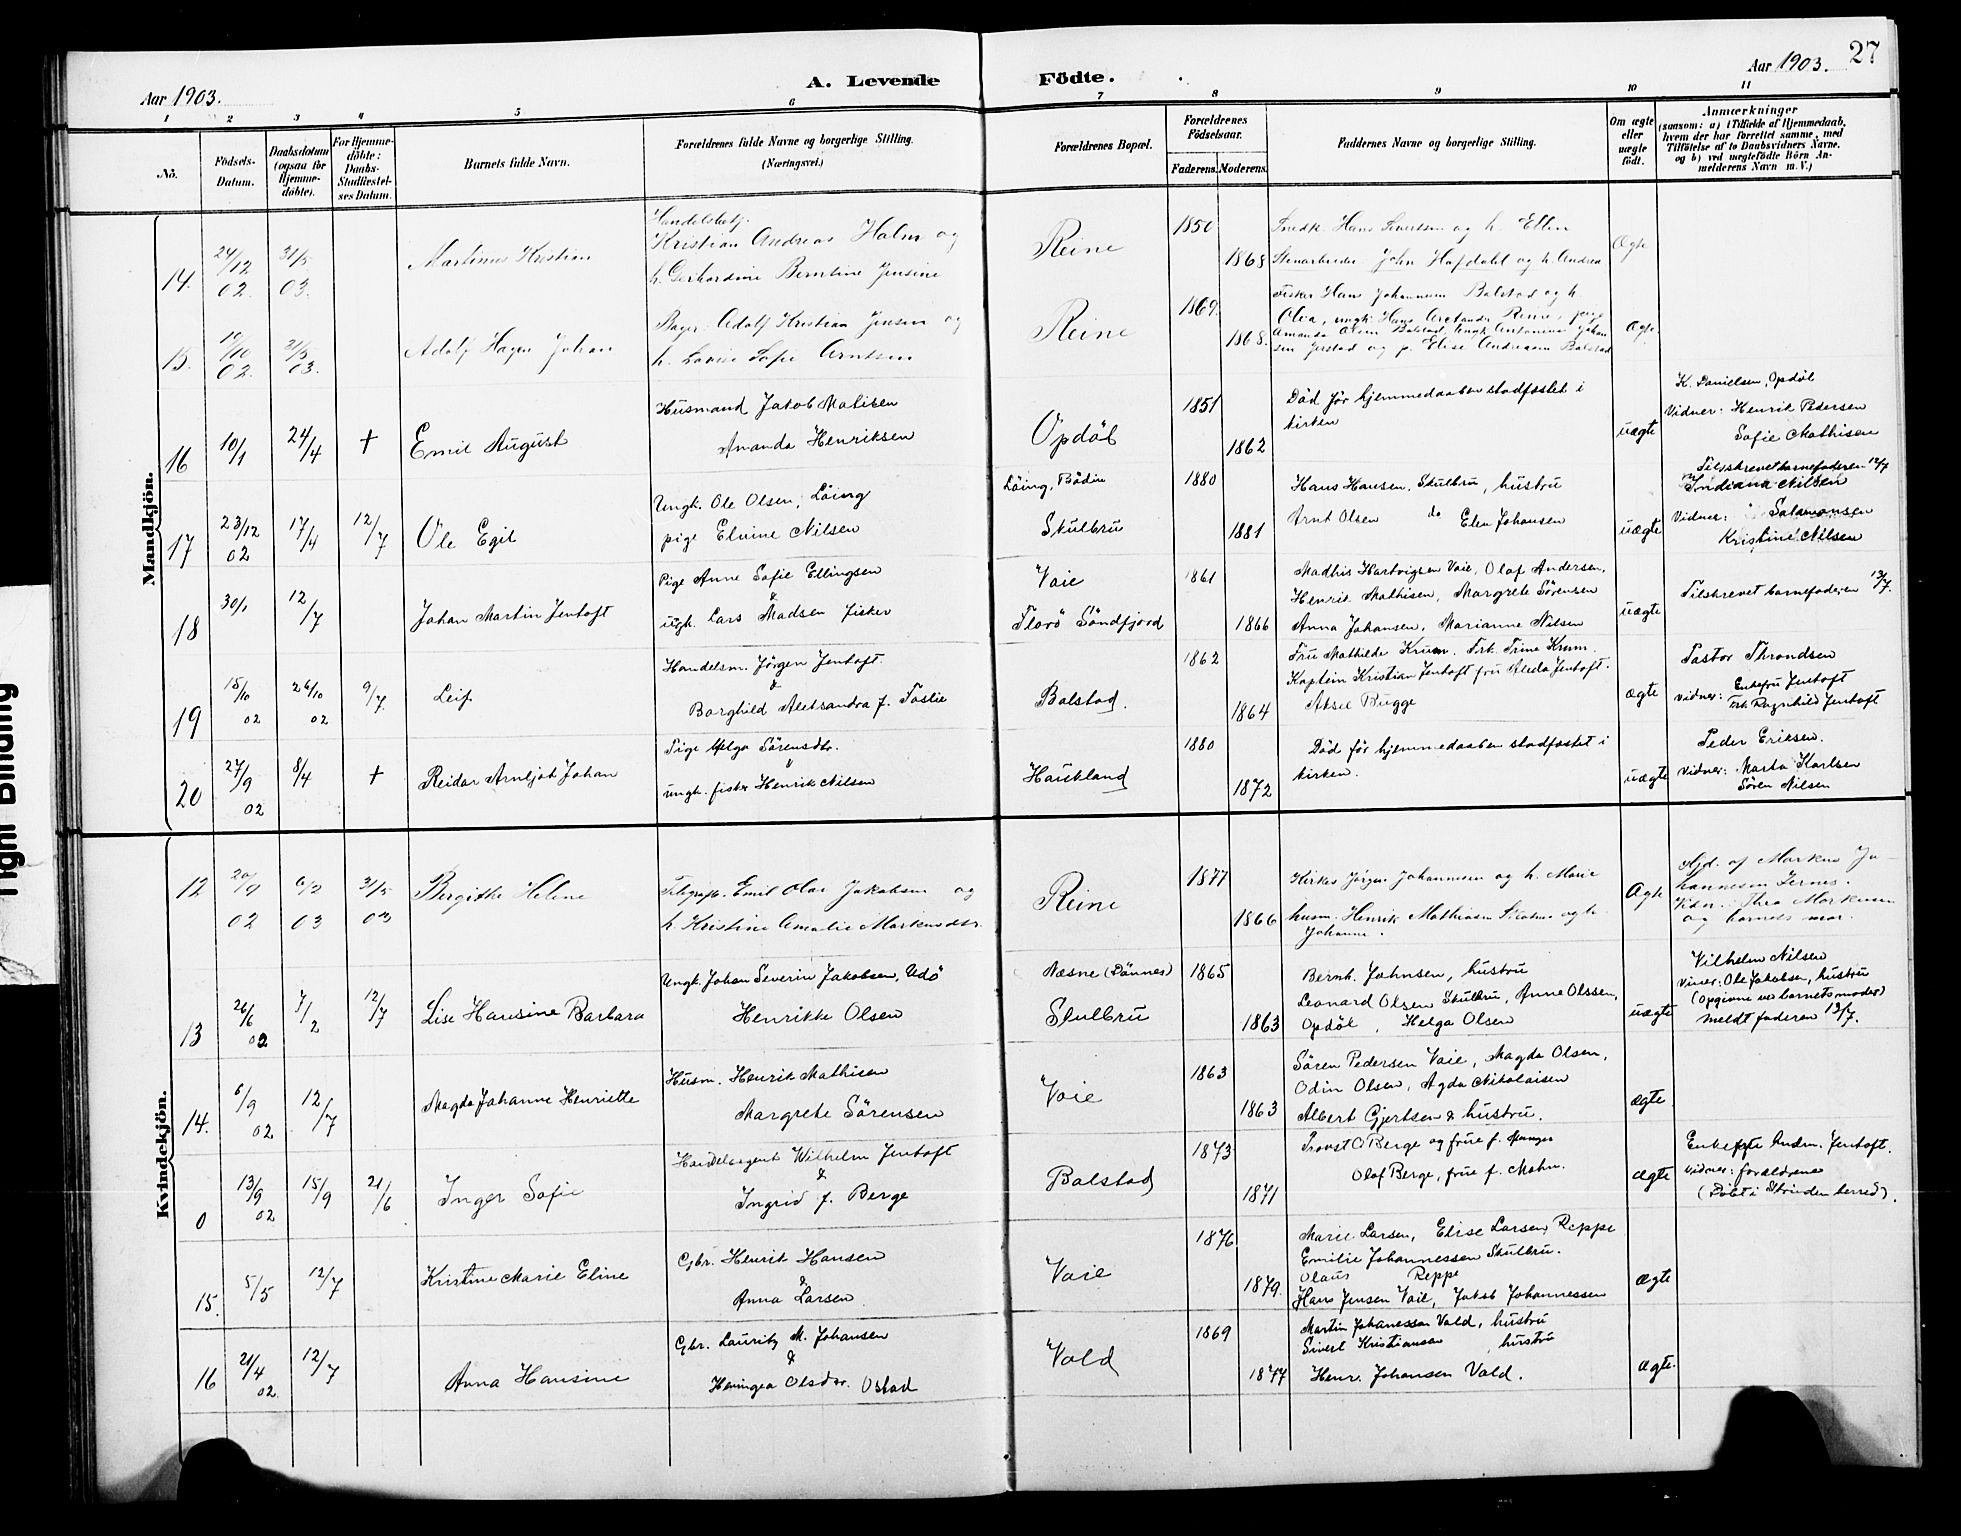 Aar 1903.
A. Levende
Födte.
Aar 1903.
27
1 2 3 4 5 6 7 8 9 10 11
No.
Födsels-
Datum.
Daabsdatum
(ogsaa for
Hjemme-
döbte).
For Hjemme-
döbte:
Daabs-
Stadfæstel-
ses Datum.
Barnets fulde Navn.
Forældrenes fulde Navne og borgerlige Stilling.
(Næringsvei.)
Forældrenes Bopæl.
Forældrenes
Födselsaar.
Faderens. Moderens.
Faddernes Navne og borgerlige Stilling.
Om ægte
eller
uægte
födt.
Anmærkninger
(saasom: a) i Tilfælde af Hjemmedaab,
hvem der har forrettet samme, med
Tilföielse af to Daabsvidners Navne,
og b) ved uægtefödte Börn An-
melderens Navn m. V.)
Mandkjön.
14. 24/12 02. 31/5 03. Martinus Kristian
Handelsbetj.
Kristian Andreas Holm og
h. Gerhardine Berntine Jensine
Reine
1850
1868
Snedk. Hans Sivertsen og h. Ellen
Stenarbeider John Hafdahl og h. Andrea
Ægte
15. 10/10 02. 31/5 03. Adolf Hagen Johan
Bager Adolf Kristian Jensen og
h. Lovise Sofie Arntsen
Reine
1869.
1868.
Fisker Hans Johannesen Balstad og h.
Olia, ungk. Hans Reine, pige
Amanda Olsen Balstad, Ungk. Antonius Johan
sen Jerstad og p. Elise Andreasen Balstad
Ægte
16 10/1 24/4 + Emil August
Husmand Jakob Matisen
Amanda Henriksen
Opdöl
1851
1862
Död för hjemmedaaben stadfæstet i
kirken
uægte
K. Danielsen, Opdöl
Vidner: Henrik Pedersen
Sofie Mathisen
17 23/12 02 17/4 12/7 Ole Egil
Ungk. Ole Olsen, Löing
pige Elvine Nilsen
Löing, Bodin
Skulbru
1880
1881
Hans Hansen, Skulbru, hustru
Arnt Olsen do Elen Johansen
uægte
Tilskrevet barnefaderen 12/7
Indiana Nilsen
Vidner: Salamonsen
Kristine Nilsen
18 30/1 12/7 Johan Martin Jentoft
Pige Anne Sofie Ellingsen
&
ugk. Lars Madsen fisker
Vaie
Florö Söndfjord
1861
1866
Mathis Hartvigsen Vaie, Olaf Andersen,
Henrik Mathisen, Margrete Sörensen
Anna Johansen, Marianne Nilsen
uægte
Tilskrevet barnefaderen 13/7.
19 18/10 02 26/10 02 9/7 Leif
Handelsm. Jörgen Jentoft
&
Borghild Aleksandra f. Taslie
Balstad.
1862
1864
Fru Mathilde Krum. Frk. Trine Krum.
Kaptein Kristian Jentoft fru Aleda Jentoft.
Aksel Bugge
ægte
Pastor Throndsen
vidner: Enkefru Jentoft
Frk. Ragnhild Jentoft
20 27/9 02 8/4 + Reidar Arnljot Johan
Pige Helga Sörensdtr.
&
ungk. fisker Henrik Nilsen
Haukland
1880
1872
Död för hjemmedaaben stadfæstet i
kirken.
uægte
Peder Eriksen.
vidner: Marta Karlsen
Sören Nilsen
Kvindekjön.
12 20/9 02 6/2 03 31/5 03 Bergitte Helene
Telegrafb. Emil Olai Jakobsen og
h. Kristine Amalie Markusdtr.
Reine
1877
1866
Kirkes. Jörgen Johannesen og h. Marie
husm. Henrik Mathiasen og h.
Johanne.
Ægte
Gjd. af Markus Jo-
hannesen Ternes.
Vidn. Thea Markusen
og barnets mor.
13 26/6 02 7/2 12/7 Lise Hansine Barbara
Ungk. Johan Severin Jakobsen, Udö
Henrikke Olsen
Næsne (Dönnes)
Skulbru
1865
1863
Bernh. Johnsen, hustru
Leonard Olsen Skulbru, Anne Olssen,
Opdöl, Helga Olsen
uægte
Vilhelm Nilsen
vidner: Ole Jakobsen, hustru
(Opgivne ved barnets moder)
meldt faderen 13/7.
14. 6/9 02 12/7 Magda Johanne Henriette
Husm. Henrik Mathisen
Margrete Sörensen
Vaie
1863
1863
Sören Pedersen Vaie, Magda Olsen,
Odin Olsen, Agda Nikolaisen
Albert Gjertsen & hustru.
ægte
0 13/9 02 15/9 21/6 Inger Sofie
Handelsagent Wilhelm Jentoft
&
Ingrid f. Berge
Balstad
1873
1871
Provst O Berge og frue f. Munger
Olaf Berge, frue f. Mohn.
ægte
Enkefrue Andr. Jentoft.
vidner: forældrene
(Döbt i Strinden herred).
15. 5/5 12/7 Kristine Marie Eline
Gbr. Henrik Hansen
&
Anna Larsen
Vaie
1876
1879.
Marie Larsen, Elise Larsen Reppe
Emilie Johannessen Skulbru.
Olaus Reppe
Hans Jensen Vaie, Jakob Johannessen
ægte
16 21/4 02. 12/7 Anna Hansine
Gbr. Lauritz M. Johansen
&
Heningea Olsdtr. Ostad
Vold
1869
1877
Martin Johanessen Vold, hustru
Sivert Kristiansen, hustru
Henr. Johansen Vold.
ægte.
Right Binding